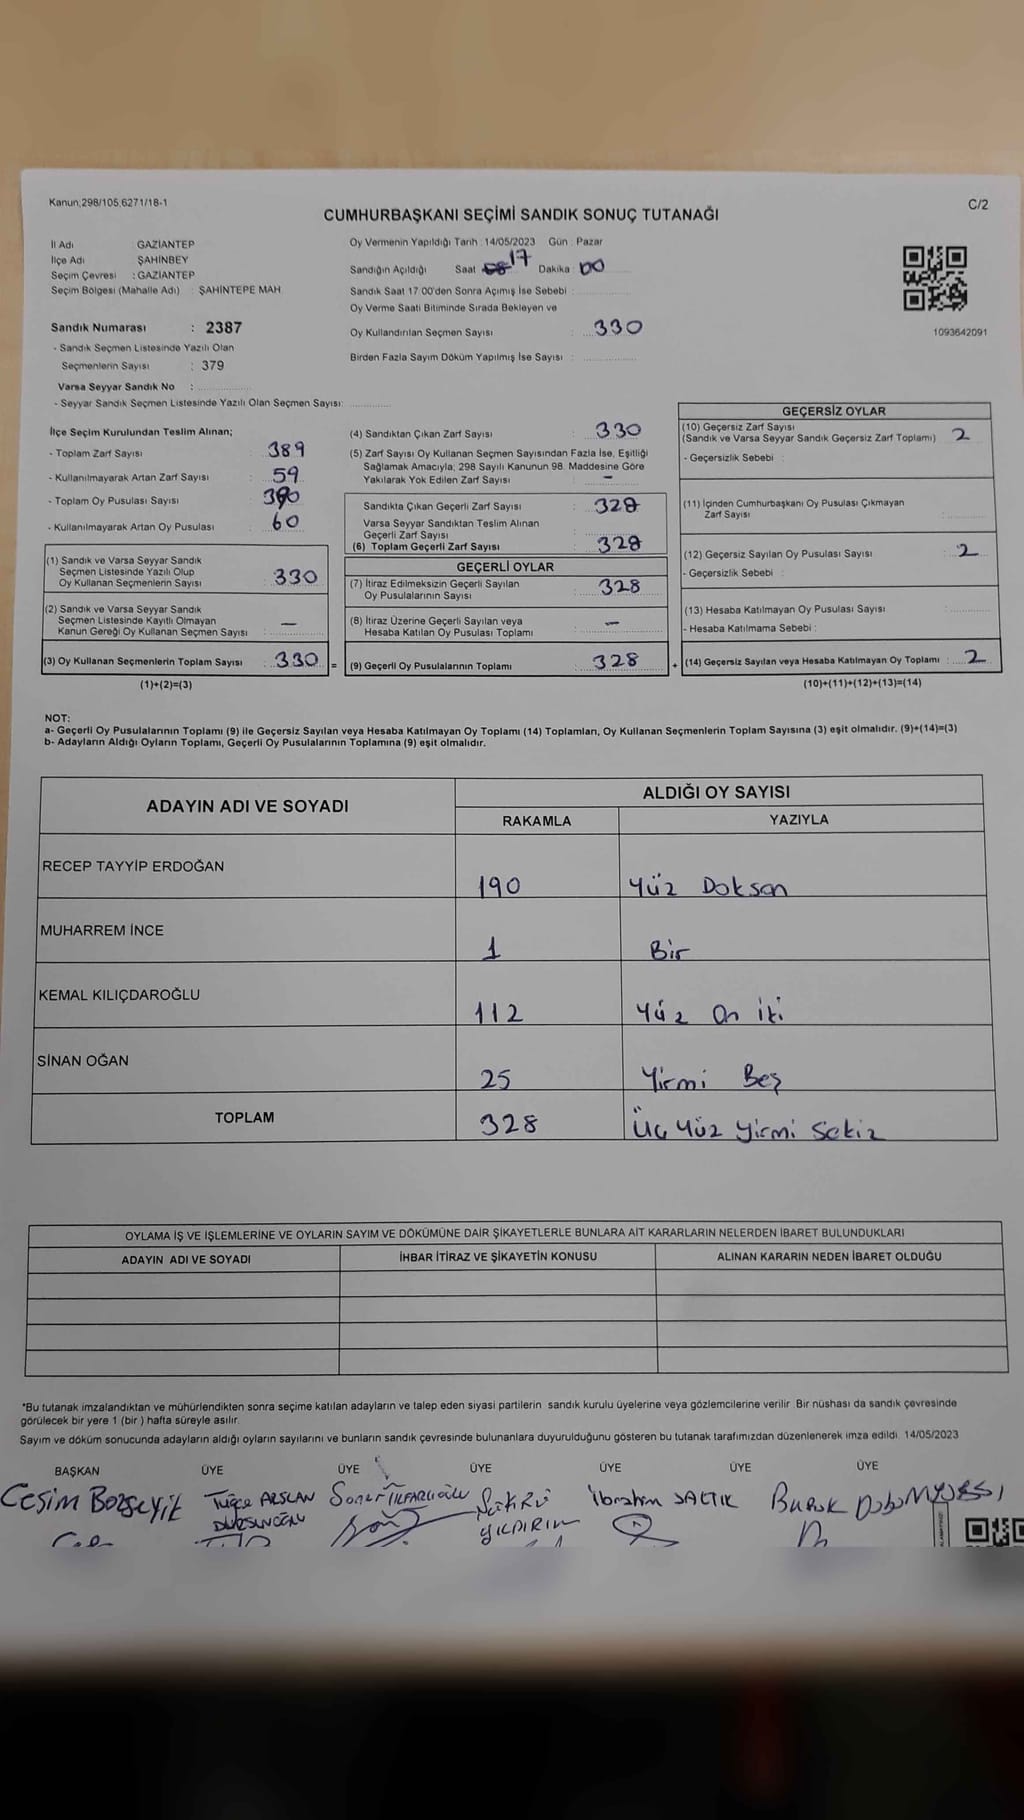 Kanun;298/105,6271/18-1
C/2
CUMHURBAŞKANI SEÇİMİ SANDIK SONUÇ TUTANAĞI
İl Adı : GAZİANTEP
İlçe Adı : ŞAHİNBEY
Seçim Çevresi : GAZİANTEP
Seçim Bölgesi (Mahalle Adı) : ŞAHİNTEPE MAH.
Sandık Numarası : 2387
- Sandık Seçmen Listesinde Yazılı Olan
Seçmenlerin Sayısı : 379
Varsa Seyyar Sandık No :
- Seyyar Sandık Seçmen Listesinde Yazılı Olan Seçmen Sayısı:
Oy Vermenin Yapıldığı Tarih : 14/05/2023 Gün : Pazar
Sandığın Açıldığı Saat 17 Dakika : 00
Sandık Saat 17:00'den Sonra Açımış İse Sebebi :
Oy Verme Saati Bitiminde Sırada Bekleyen ve
Oy Kullandırılan Seçmen Sayısı : 330
Birden Fazla Sayım Döküm Yapılmış İse Sayısı :
1093642091
İlçe Seçim Kurulundan Teslim Alınan;
- Toplam Zarf Sayısı : 389
- Kullanılmayarak Artan Zarf Sayısı : 59
- Toplam Oy Pusulası Sayısı : 390
- Kullanılmayarak Artan Oy Pusulası : 60
(1) Sandık ve Varsa Seyyar Sandık
Seçmen Listesinde Yazılı Olup
Oy Kullanan Seçmenlerin Sayısı : 330
(2) Sandık ve Varsa Seyyar Sandık
Seçmen Listesinde Kayıtlı Olmayan
Kanun Gereği Oy Kullanan Seçmen Sayısı : —
(3) Oy Kullanan Seçmenlerin Toplam Sayısı : 330 =
(1)+(2)=(3)
(4) Sandıktan Çıkan Zarf Sayısı : 330
(5) Zarf Sayısı Oy Kullanan Seçmen Sayısından Fazla İse, Eşitliği
Sağlamak Amacıyla; 298 Sayılı Kanunun 98. Maddesine Göre
Yakılarak Yok Edilen Zarf Sayısı : —
Sandıkta Çıkan Geçerli Zarf Sayısı : 328
Varsa Seyyar Sandıktan Teslim Alınan
Geçerli Zarf Sayısı :
(6) Toplam Geçerli Zarf Sayısı : 328
GEÇERLİ OYLAR
(7) İtiraz Edilmeksizin Geçerli Sayılan
Oy Pusulalarının Sayısı : 328
(8) İtiraz Üzerine Geçerli Sayılan veya
Hesaba Katılan Oy Pusulası Toplamı : —
(9) Geçerli Oy Pusulalarının Toplamı : 328 +
GEÇERSİZ OYLAR
(10) Geçersiz Zarf Sayısı
(Sandık ve Varsa Seyyar Sandık Geçersiz Zarf Toplamı) : 2
- Geçersizlik Sebebi :
(11) İçinden Cumhurbaşkanı Oy Pusulası Çıkmayan
Zarf Sayısı :
(12) Geçersiz Sayılan Oy Pusulası Sayısı : 2
- Geçersizlik Sebebi :
(13) Hesaba Katılmayan Oy Pusulası Sayısı :
- Hesaba Katılmama Sebebi :
(14) Geçersiz Sayılan veya Hesaba Katılmayan Oy Toplamı : 2
(10)+(11)+(12)+(13)=(14)
NOT:
a- Geçerli Oy Pusulalarının Toplamı (9) ile Geçersiz Sayılan veya Hesaba Katılmayan Oy Toplamı (14) Toplamları, Oy Kullanan Seçmenlerin Toplam Sayısına (3) eşit olmalıdır. (9)+(14)=(3)
b- Adayların Aldığı Oyların Toplamı, Geçerli Oy Pusulalarının Toplamına (9) eşit olmalıdır.
ADAYIN ADI VE SOYADI
ALDIĞI OY SAYISI
RAKAMLA YAZIYLA
RECEP TAYYİP ERDOĞAN 190 Yüz Doksan
MUHARREM İNCE 1 Bir
KEMAL KILIÇDAROĞLU 112 Yüz On iki
SİNAN OĞAN 25 Yirmi Beş
TOPLAM 328 Üç Yüz Yirmi Sekiz
OYLAMA İŞ VE İŞLEMLERİNE VE OYLARIN SAYIM VE DÖKÜMÜNE DAİR ŞİKAYETLERLE BUNLARA AİT KARARLARIN NELERDEN İBARET BULUNDUKLARI
ADAYIN ADI VE SOYADI İHBAR İTİRAZ VE ŞİKAYETİN KONUSU ALINAN KARARIN NEDEN İBARET OLDUĞU
*Bu tutanak imzalandıktan ve mühürlendikten sonra seçime katılan adayların ve talep eden siyasi partilerin sandık kurulu üyelerine veya gözlemcilerine verilir. Bir nüshası da sandık çevresinde
görülecek bir yere 1 (bir ) hafta süreyle asılır.
Sayım ve döküm sonucunda adayların aldığı oyların sayılarını ve bunların sandık çevresinde bulunanlara duyurulduğunu gösteren bu tutanak tarafımızdan düzenlenerek imza edildi. 14/05/2023
BAŞKAN ÜYE ÜYE ÜYE ÜYE ÜYE ÜYE
Tuğçe ARSLAN
DURSUNOĞLU
YILDIRIM
İbrahim SALTIK
Burak